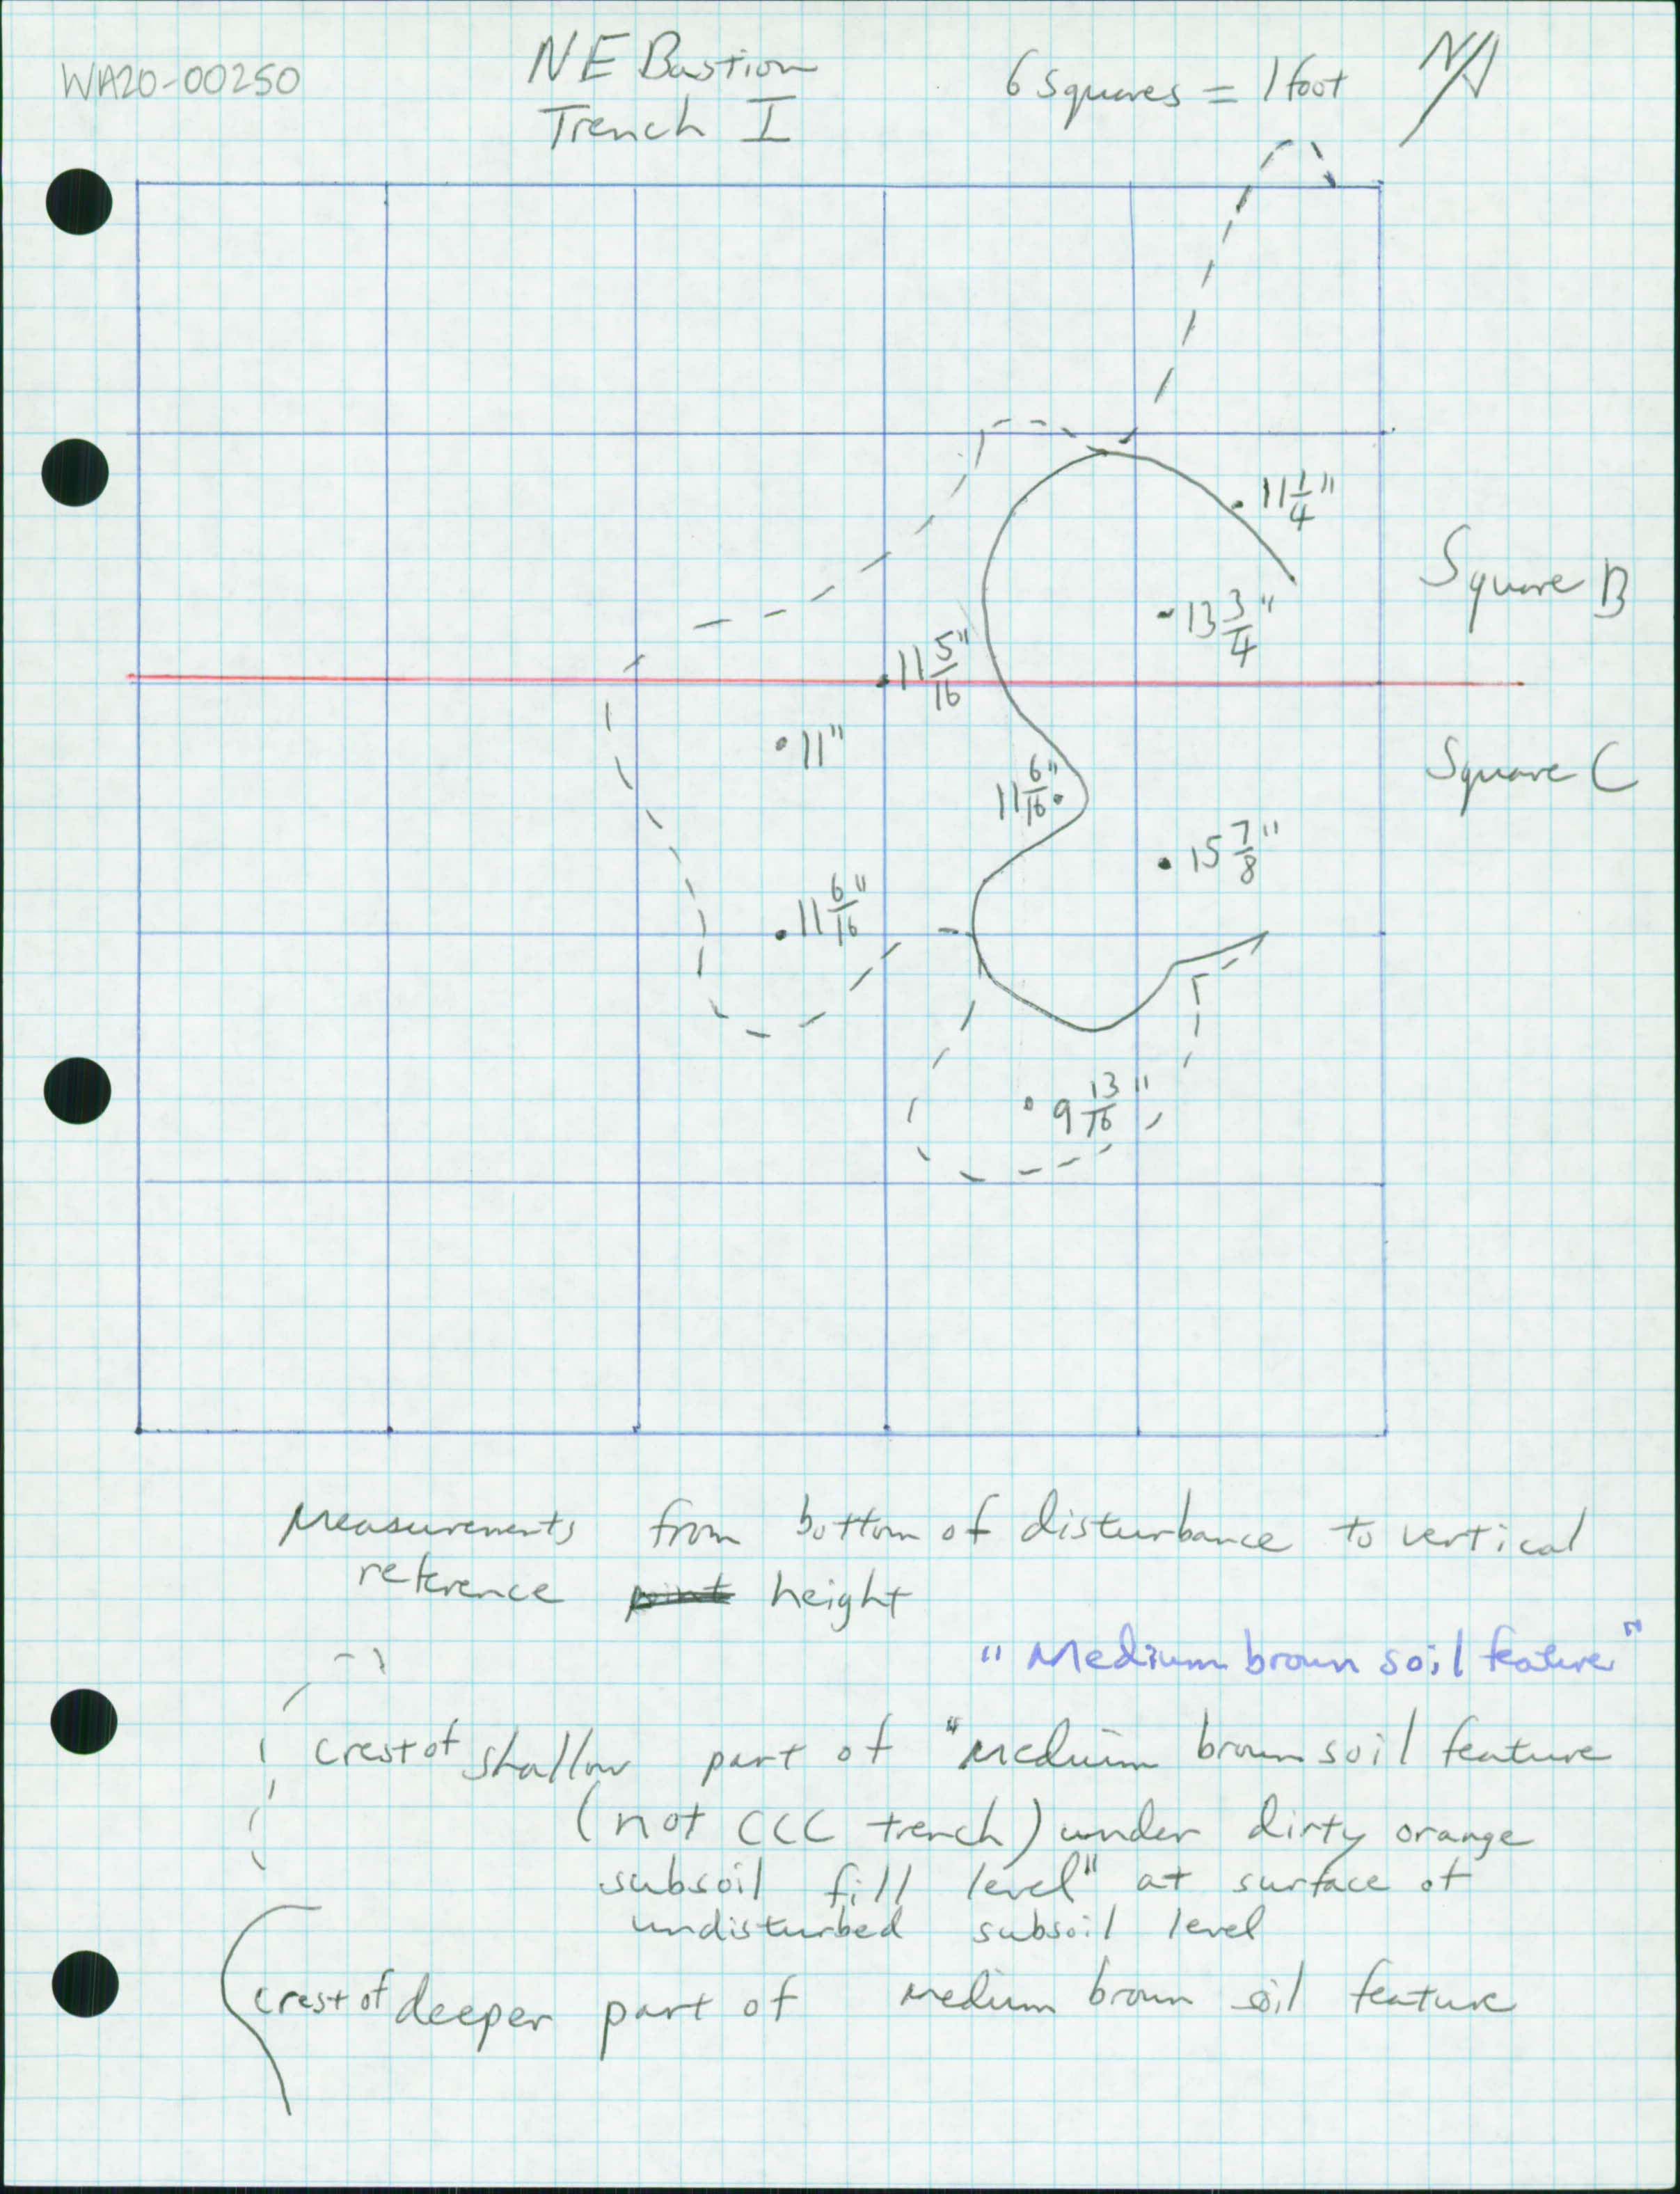 WA20-00250
NE Bastion
Trench I
6 squares = 1 foot
N
11 1/4"
13 3/4"
Square B
11 5/16"
11"
Square C
11 6/16"
15 7/8"
11 6/16"
9 13/16"
Measurements from bottom of disturbance to vertical
reference point height
"Medium brown soil feature"
crest of shallow part of "medium brown soil feature
(not CCC trench) under dirty orange
subsoil fill level" at surface of
undisturbed subsoil level
crest of deeper part of medium brown soil feature